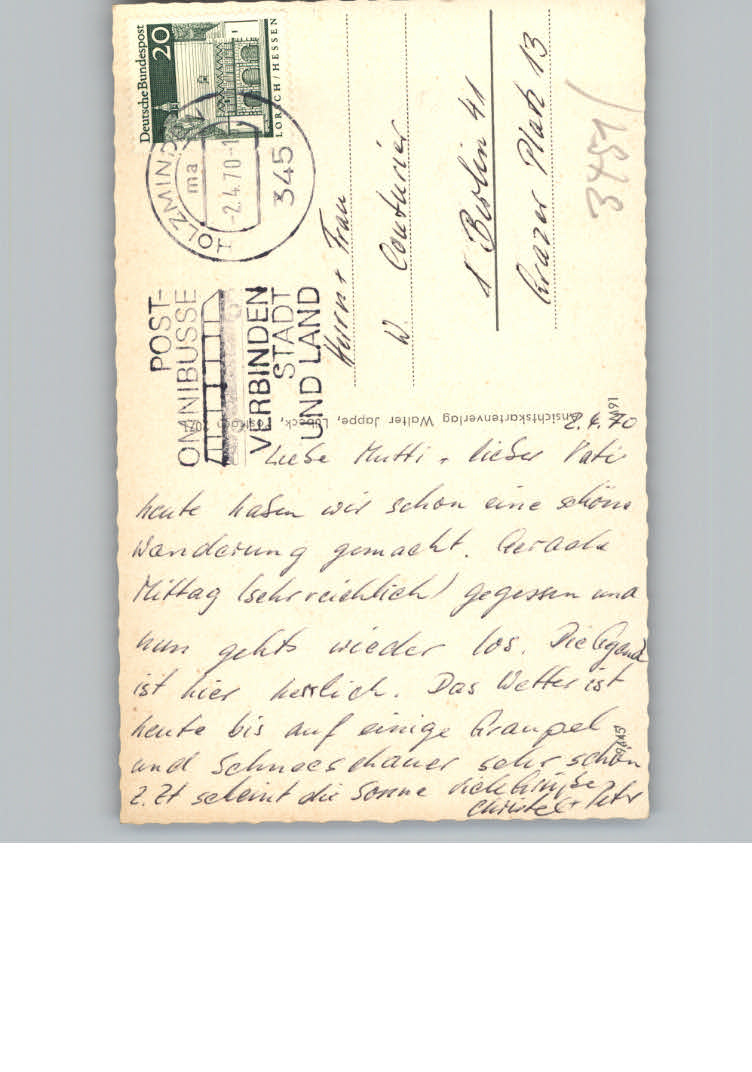 Deutsche Bundespost
20
LORSCH/HESSEN
HOLZMINDEN
ma
-2.4.70-1
345
POST-
OMNIBUSSE
VERBINDEN
STADT
UND LAND
Herrn + Frau
W. Couturier
1 Berlin 41
Grazer Platz 13
3451/
Ansichtskartenverlag Walter Jappe, Lübeck,
2.4.70
Liebe Mutti, lieber Vati
heute haben wir schon eine schöne
Wanderung gemacht. Gerade
Mittag (sehr reichlich) gegessen und
nun gehts wieder los. Die Gegend
ist hier herrlich. Das Wetter ist
heute bis auf einige Graupel
und Schneeschauer sehr schön
z. Zt scheint die Sonne viele Grüße
Christel + Peter